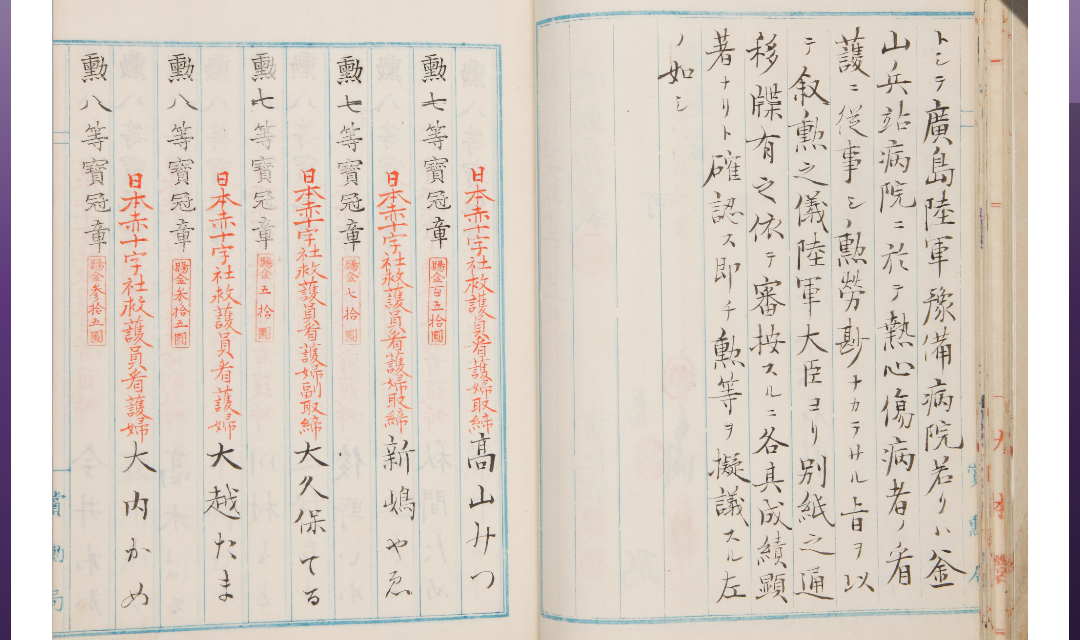 トシテ廣島陸軍豫備病院若リハ釜
山兵站病院ニ於テ熱心傷病者ノ看
護ニ從事シノ勲勞尠ナカラサル旨ヲ以
テ叙勲之儀陸軍大臣ヨリ別紙之通
移牒有之依テ審按スルニ各其成績顯
著ナリト確認ス即チ勲等ヲ擬議スル左
ノ如シ
賞勲局
日本赤十字社救護員看護婦取締 高山みつ
勲七等寶冠章 賜金百五拾圓
日本赤十字社救護員看護婦取締 新嶋やゑ
勲七等寶冠章 賜金七拾圓
日本赤十字社救護員看護婦副取締 大久保てる
勲七等寶冠章 賜金五拾圓
日本赤十字社救護員看護婦 大越たま
勲八等寶冠章 賜金参拾五圓
日本赤十字社救護員看護婦 大内かめ
勲八等寶冠章 賜金参拾五圓
賞勲局